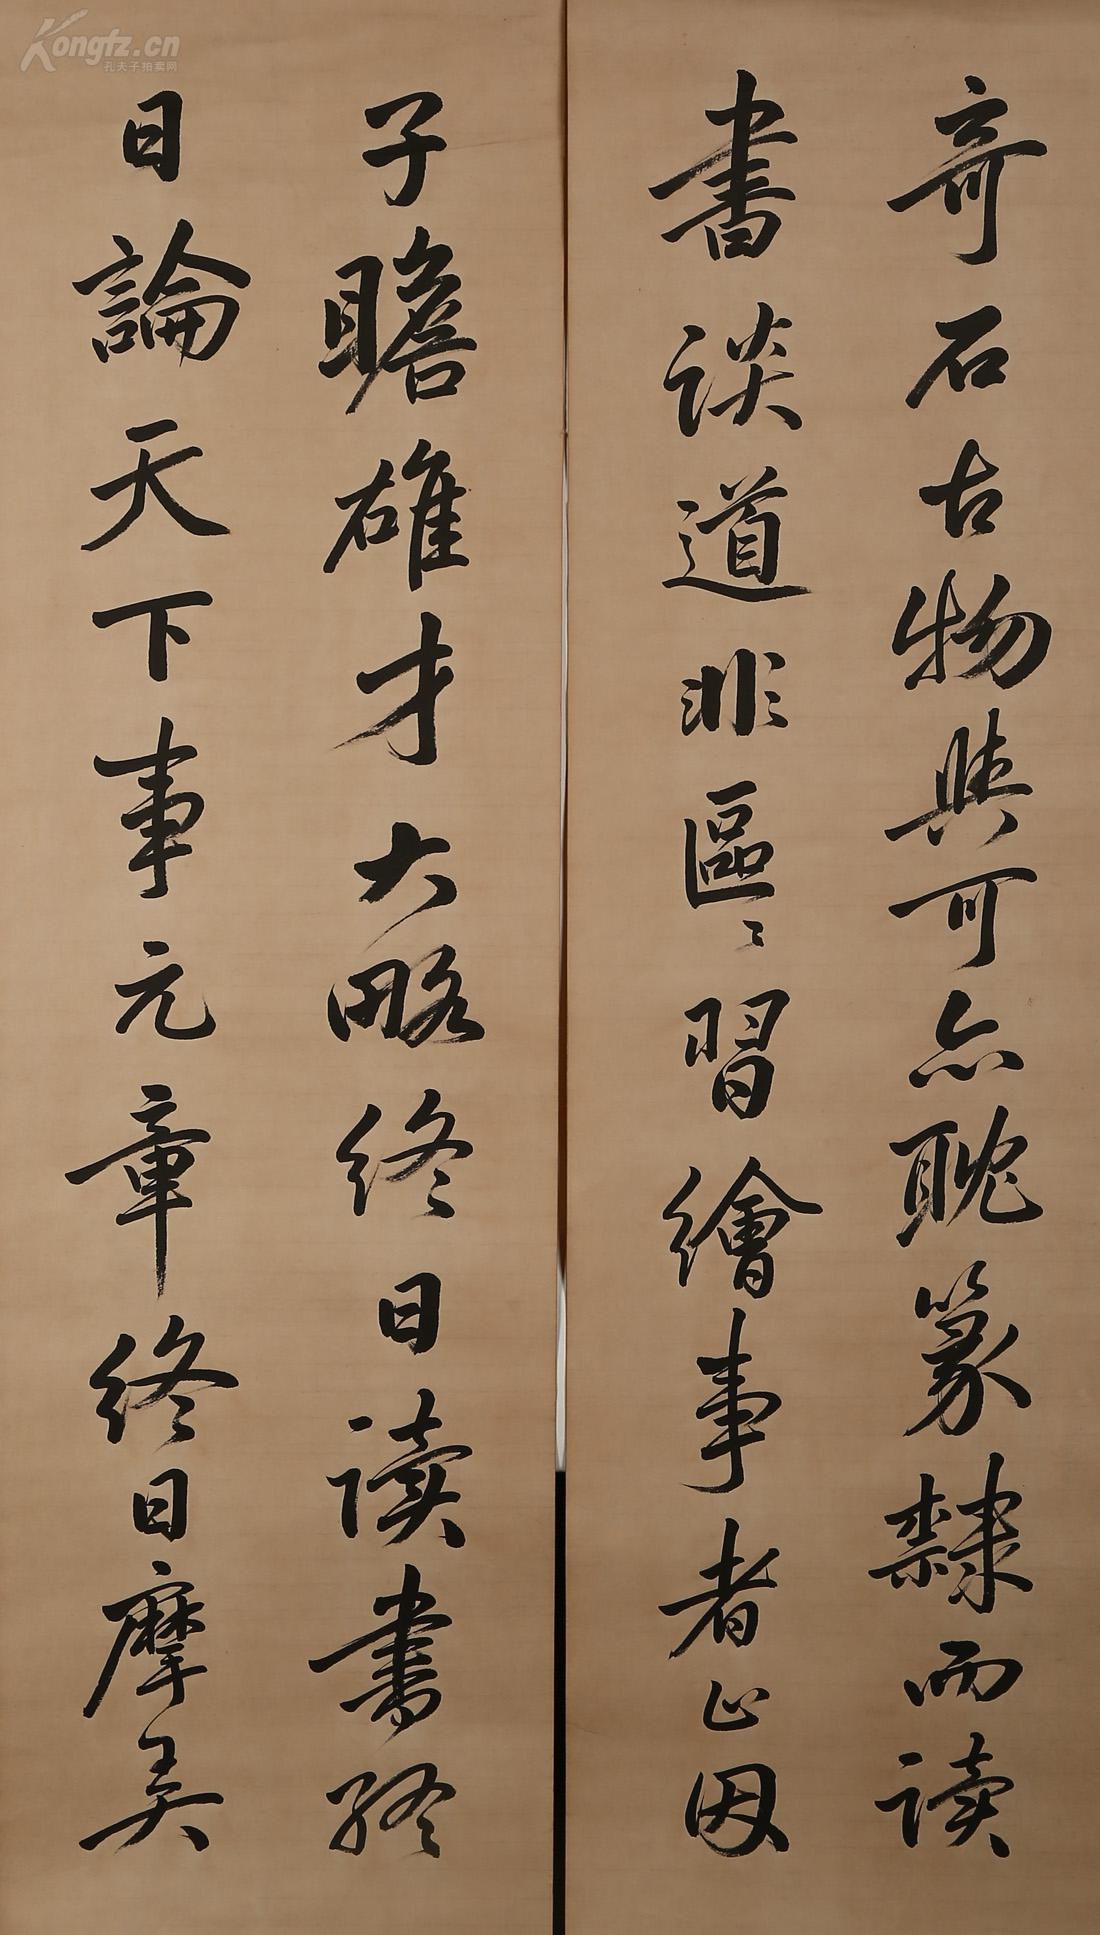 Kongfz.cn
孔夫子拍卖网
子瞻雄才大略終日讀書終
日論天下事元章終日摩弄
奇石古物與可亦耽篆隸而讀
書談道非區々習繪事者止因